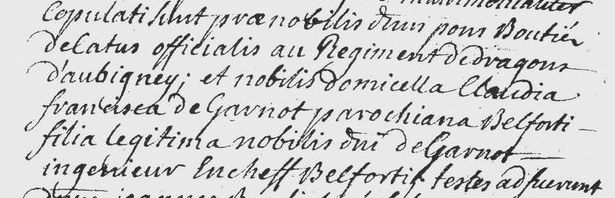 matrimonialiter
copulati sunt prænobilis dnus pons Boutier
delatus officialis au Regiment de dragons
d'aubigney; et nobilis domicella Claudia
francisca de Garnot parochiana Belforti-
filia legitima nobilis dni de Garnot
ingenieur Encheff Belfortis testes adfuerunt